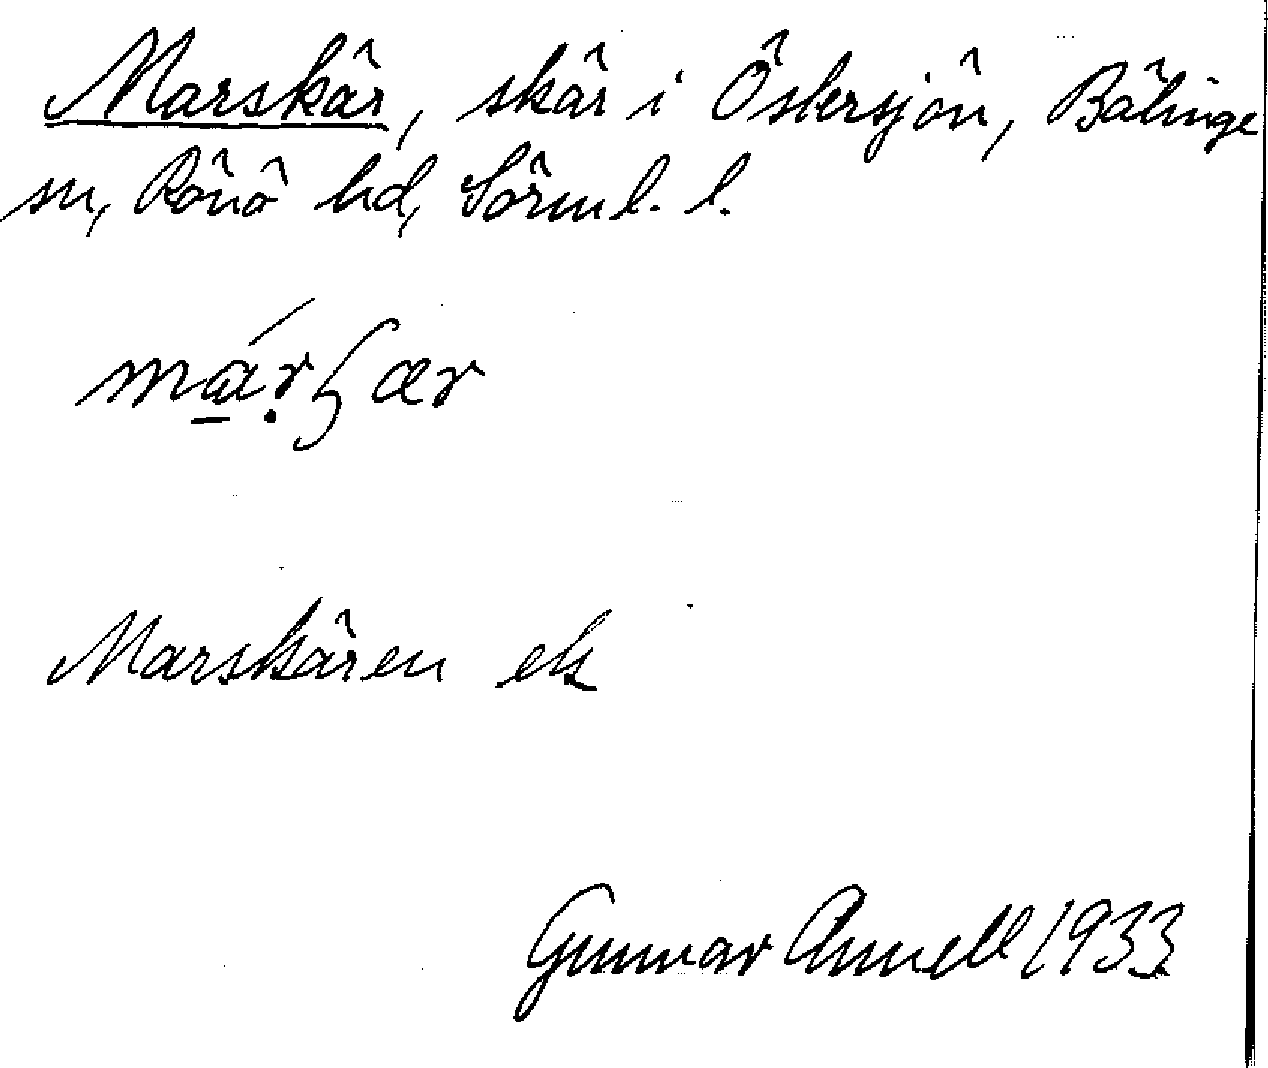 Marskär, skär i Östersjön, Bälinge
sn, Rönö hd, Sörml. l.
Marskären ek
Gunnar Annell 1933